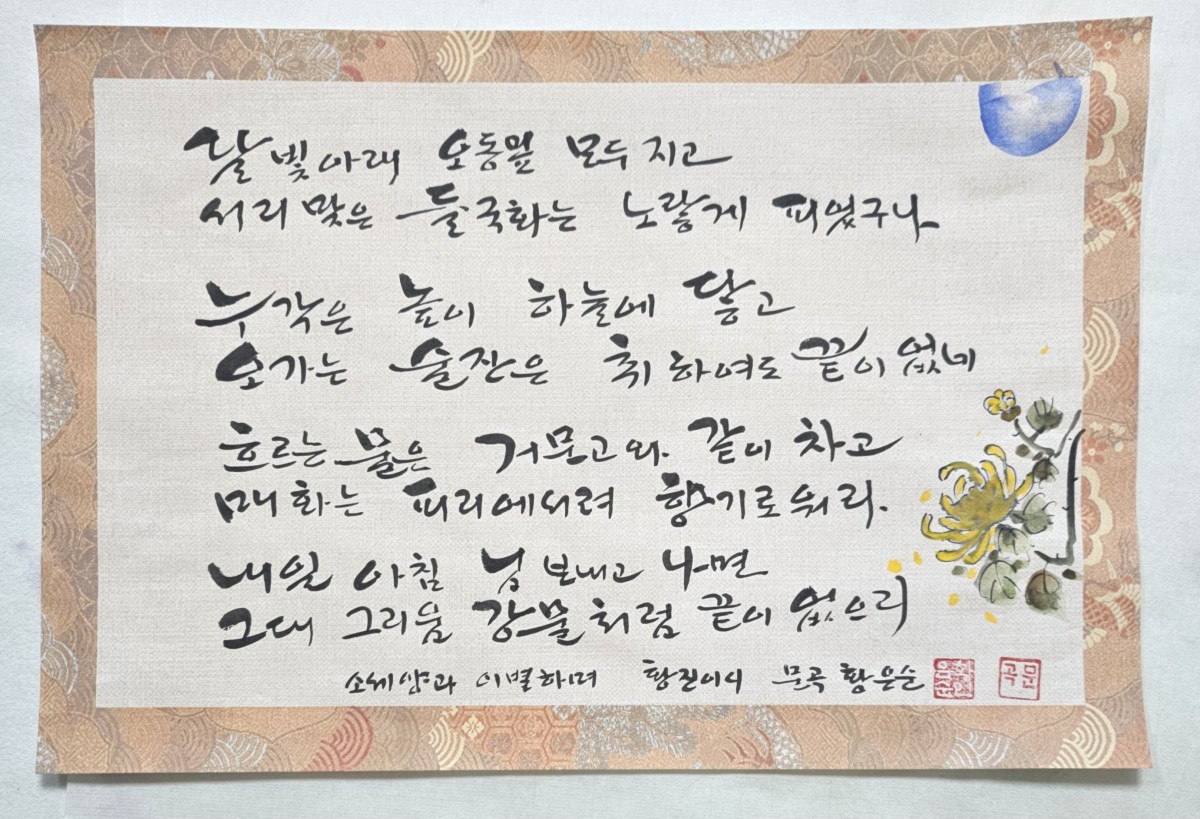 달빛아래 오동잎 모두 지고
서리 맞은 들국화는 노랗게 피었구나
누각은 높이 하늘에 닿고
오가는 술잔은 취하여도 끝이 없네
흐르는 물은 거문고와 같이 차고
매화는 피리에 서려 향기로워라.
내일 아침 님 보내고 나면
그대 그리움 강물처럼 끝이 없으리
소세양과 이별하며 황진이시 문곡 황은순
문곡